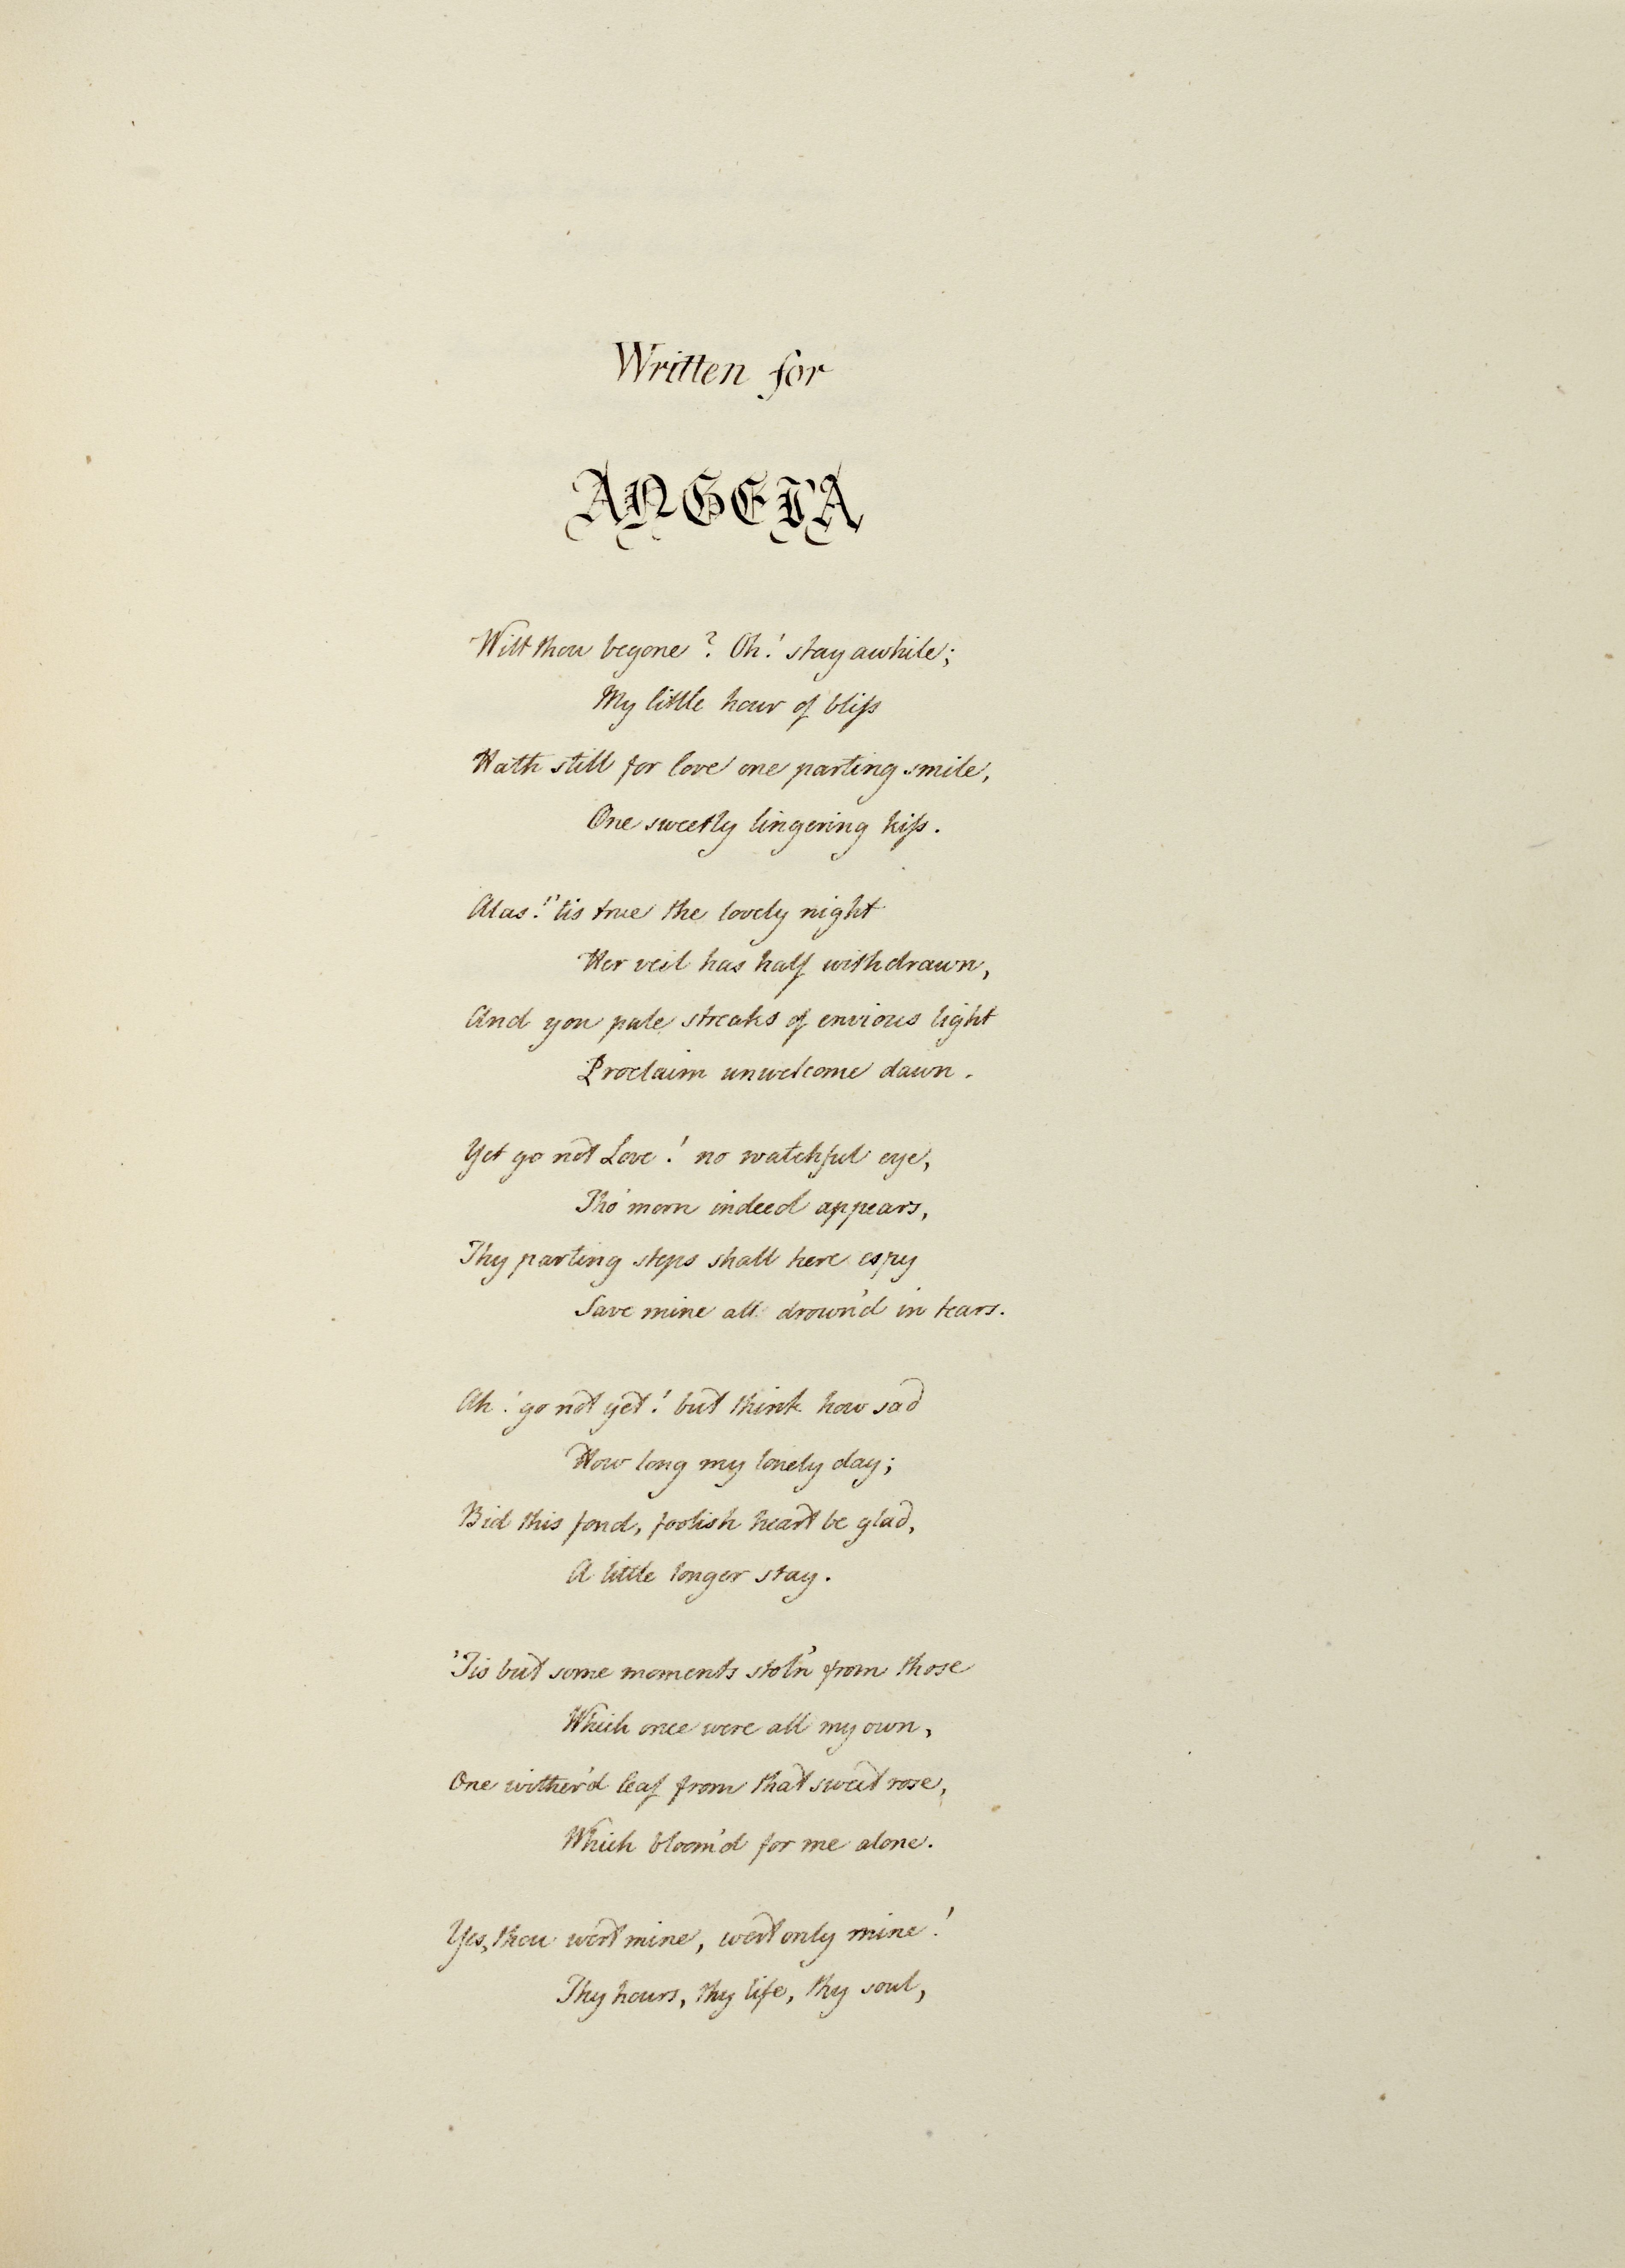 Written for
ANGELA
Wilt thou begone? Oh! stay awhile;
My little hour of bliſs
Hath still for love one parting smile,
One sweetly lingering kiſs.
Alas! 'tis true the lovely night
Her veil has half withdrawn,
And yon pale streaks of envious light
Proclaim unwelcome dawn.
Yet go not Love! no watchful eye,
Tho' morn indeed appears,
Thy parting steps shall here espy
Save mine all drown'd in tears.
Ah! go not yet! but think how sad
How long my lonely day;
Bid this fond, foolish heart be glad,
A little longer stay.
'Tis but some moments stol'n from those
Which once were all my own,
One wither'd leaf from that sweet rose,
Which bloom'd for me alone.
Yes, thou wert mine, wert only mine!
Thy hours, thy life, thy soul,